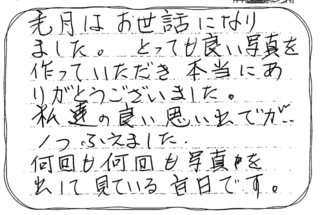 先月はお世話になり
ました。 とっても良い写真を
作っていただき本当にあ
りがとうございました。
私達の良い思い出でが
1つふえました.
何回も何回も写真を
出して見ている毎日です。